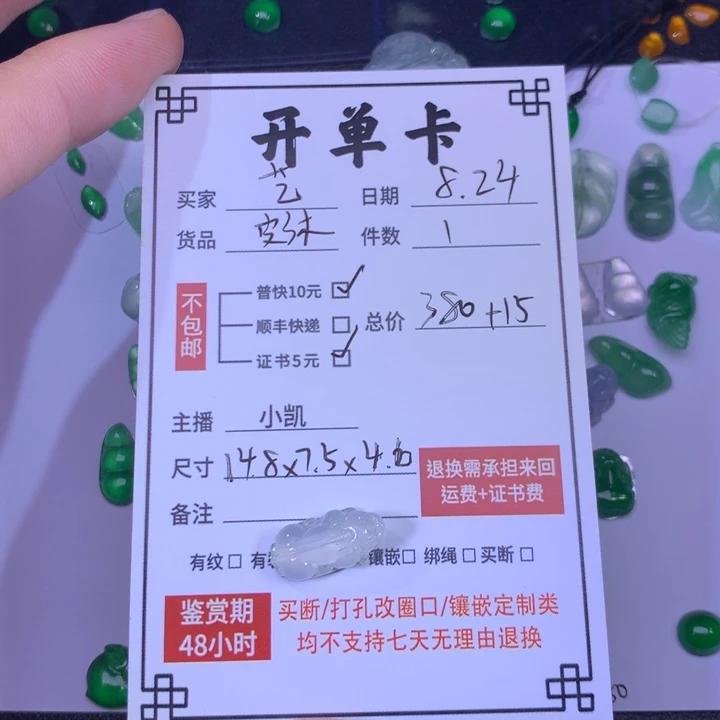 开单卡
买家 艺 日期 8.24
货品 件数 1
不包邮
普快10元 ☑
顺丰快递 □ 总价 380+15
证书5元 ☑
主播 小凯
尺寸 14.8×7.5×4.6
退换需承担来回
运费+证书费
备注
有纹 □ 有 镶嵌 □ 绑绳 □ 买断 □
鉴赏期
48小时
买断/打孔改圈口/镶嵌定制类
均不支持七天无理由退换